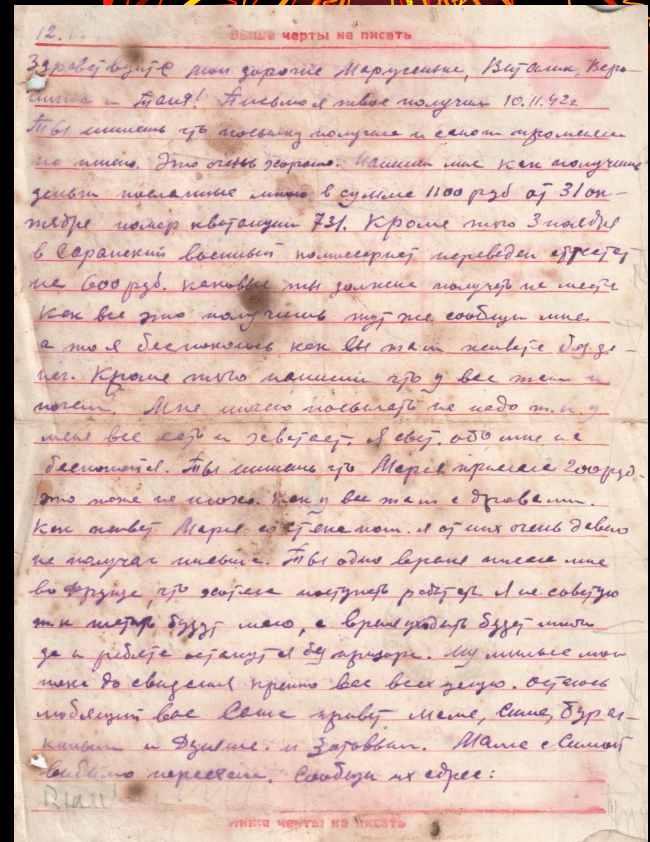 12.
выше черты не писать
Здравствуйте мои дорогие Марусенька, Виталик, Веро-
ника и Таня! Письмо я твое получил 10.11.42г
Ты пишешь что посылку получила и сапоги променяла
на пшено. Это очень хорошо. Напиши мне как получишь
деньги посланные мною в сумме 1100 руб от 31 ок-
тября номер квитанции 731. Кроме того 3 ноября
в Саранский военный комиссариат переведен аттестат
на 600 руб. каковые ты должна получать на месте
Как все это получишь тут же сообщи мне
а то я беспокоюсь как вы там живете без де-
нег. Кроме того напиши что у вас там и
почем. Мне ничего посылать не надо т.к. у
меня все есть и хватает. Я сыт. обо мне не
беспокойся. Ты пишешь что Маруся прислала 200 руб.
это тоже не плохо. Как у вас там с дровами.
Как живет Маруся со я от них очень давно
не получал письма. Ты одно время писала мне
во Фрунзе, что хотела поступать работать я не советую
т.к. толку будет мало, а время уходить будет много
да и ребята останутся без призора. Ну милые мои
пока до свидания крепко вас всех целую. остаюсь
любящий вас Саша привет маме, Симе, Бурак-
киным и Дуняше. и Маме с Симой
видимо переехали. Сообщи их адрес:
ниже черты не писать